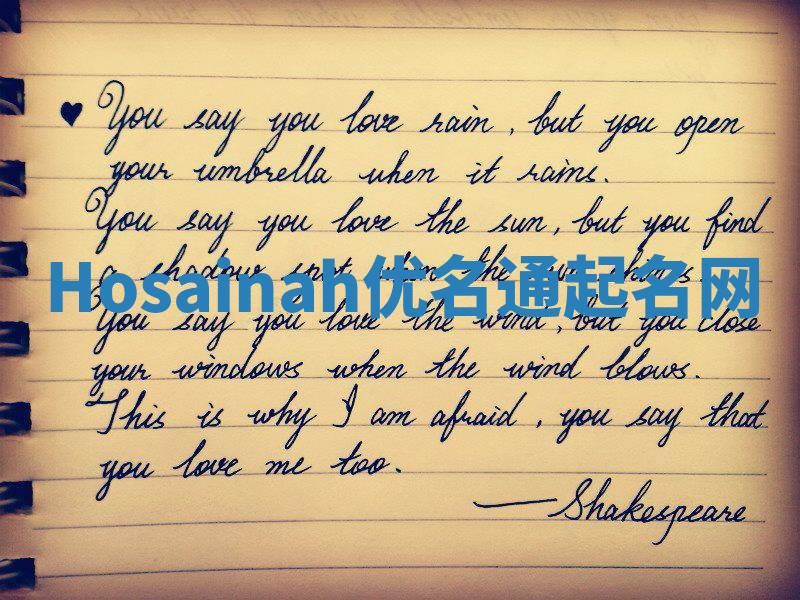 ♥ You say you love rain, but you open
your umbrella when it rains.
You say you love the sun, but you find
a shadow spot when the sun shines.
Hosainah优名通起名网
You say you love the wind, but you close
your windows when the wind blows.
This is why I am afraid, you say that
you love me too.
—Shakespeare